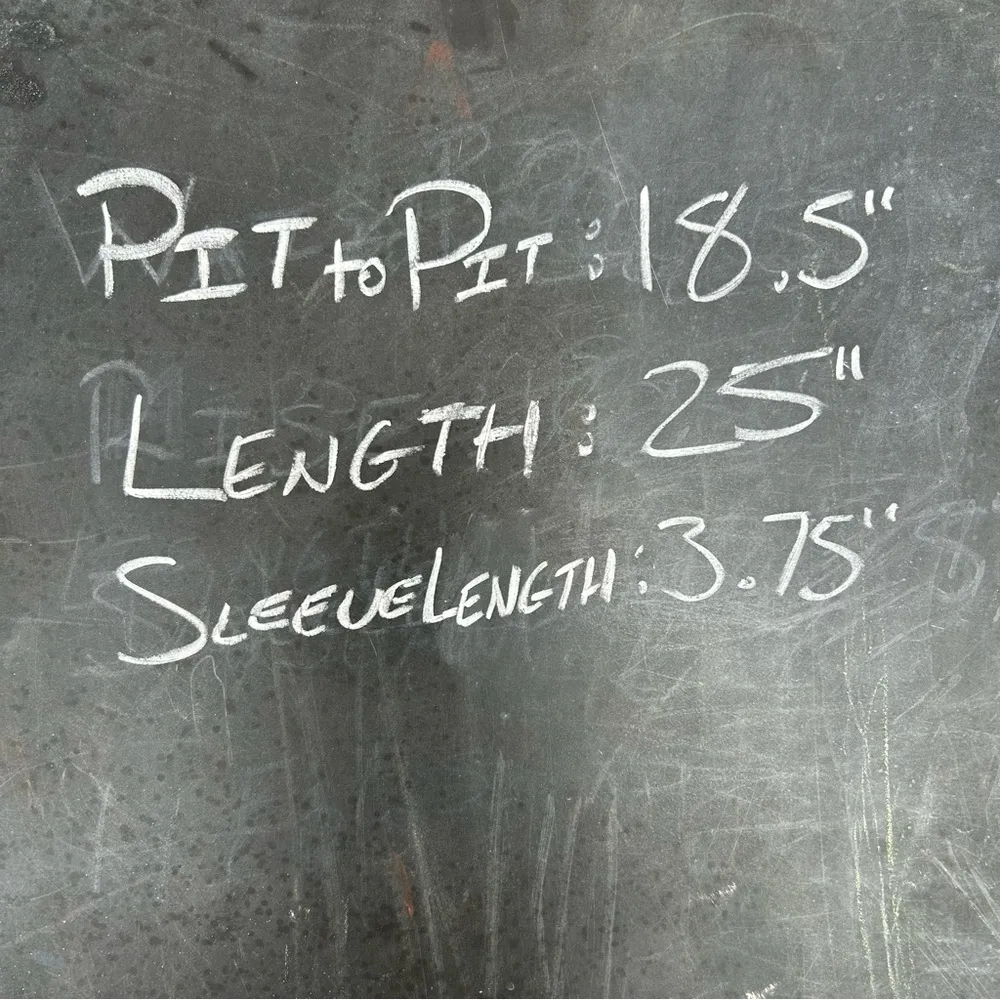 PIT to PIT: 18.5"
LENGTH: 25"
SLEEVE LENGTH: 3.75"